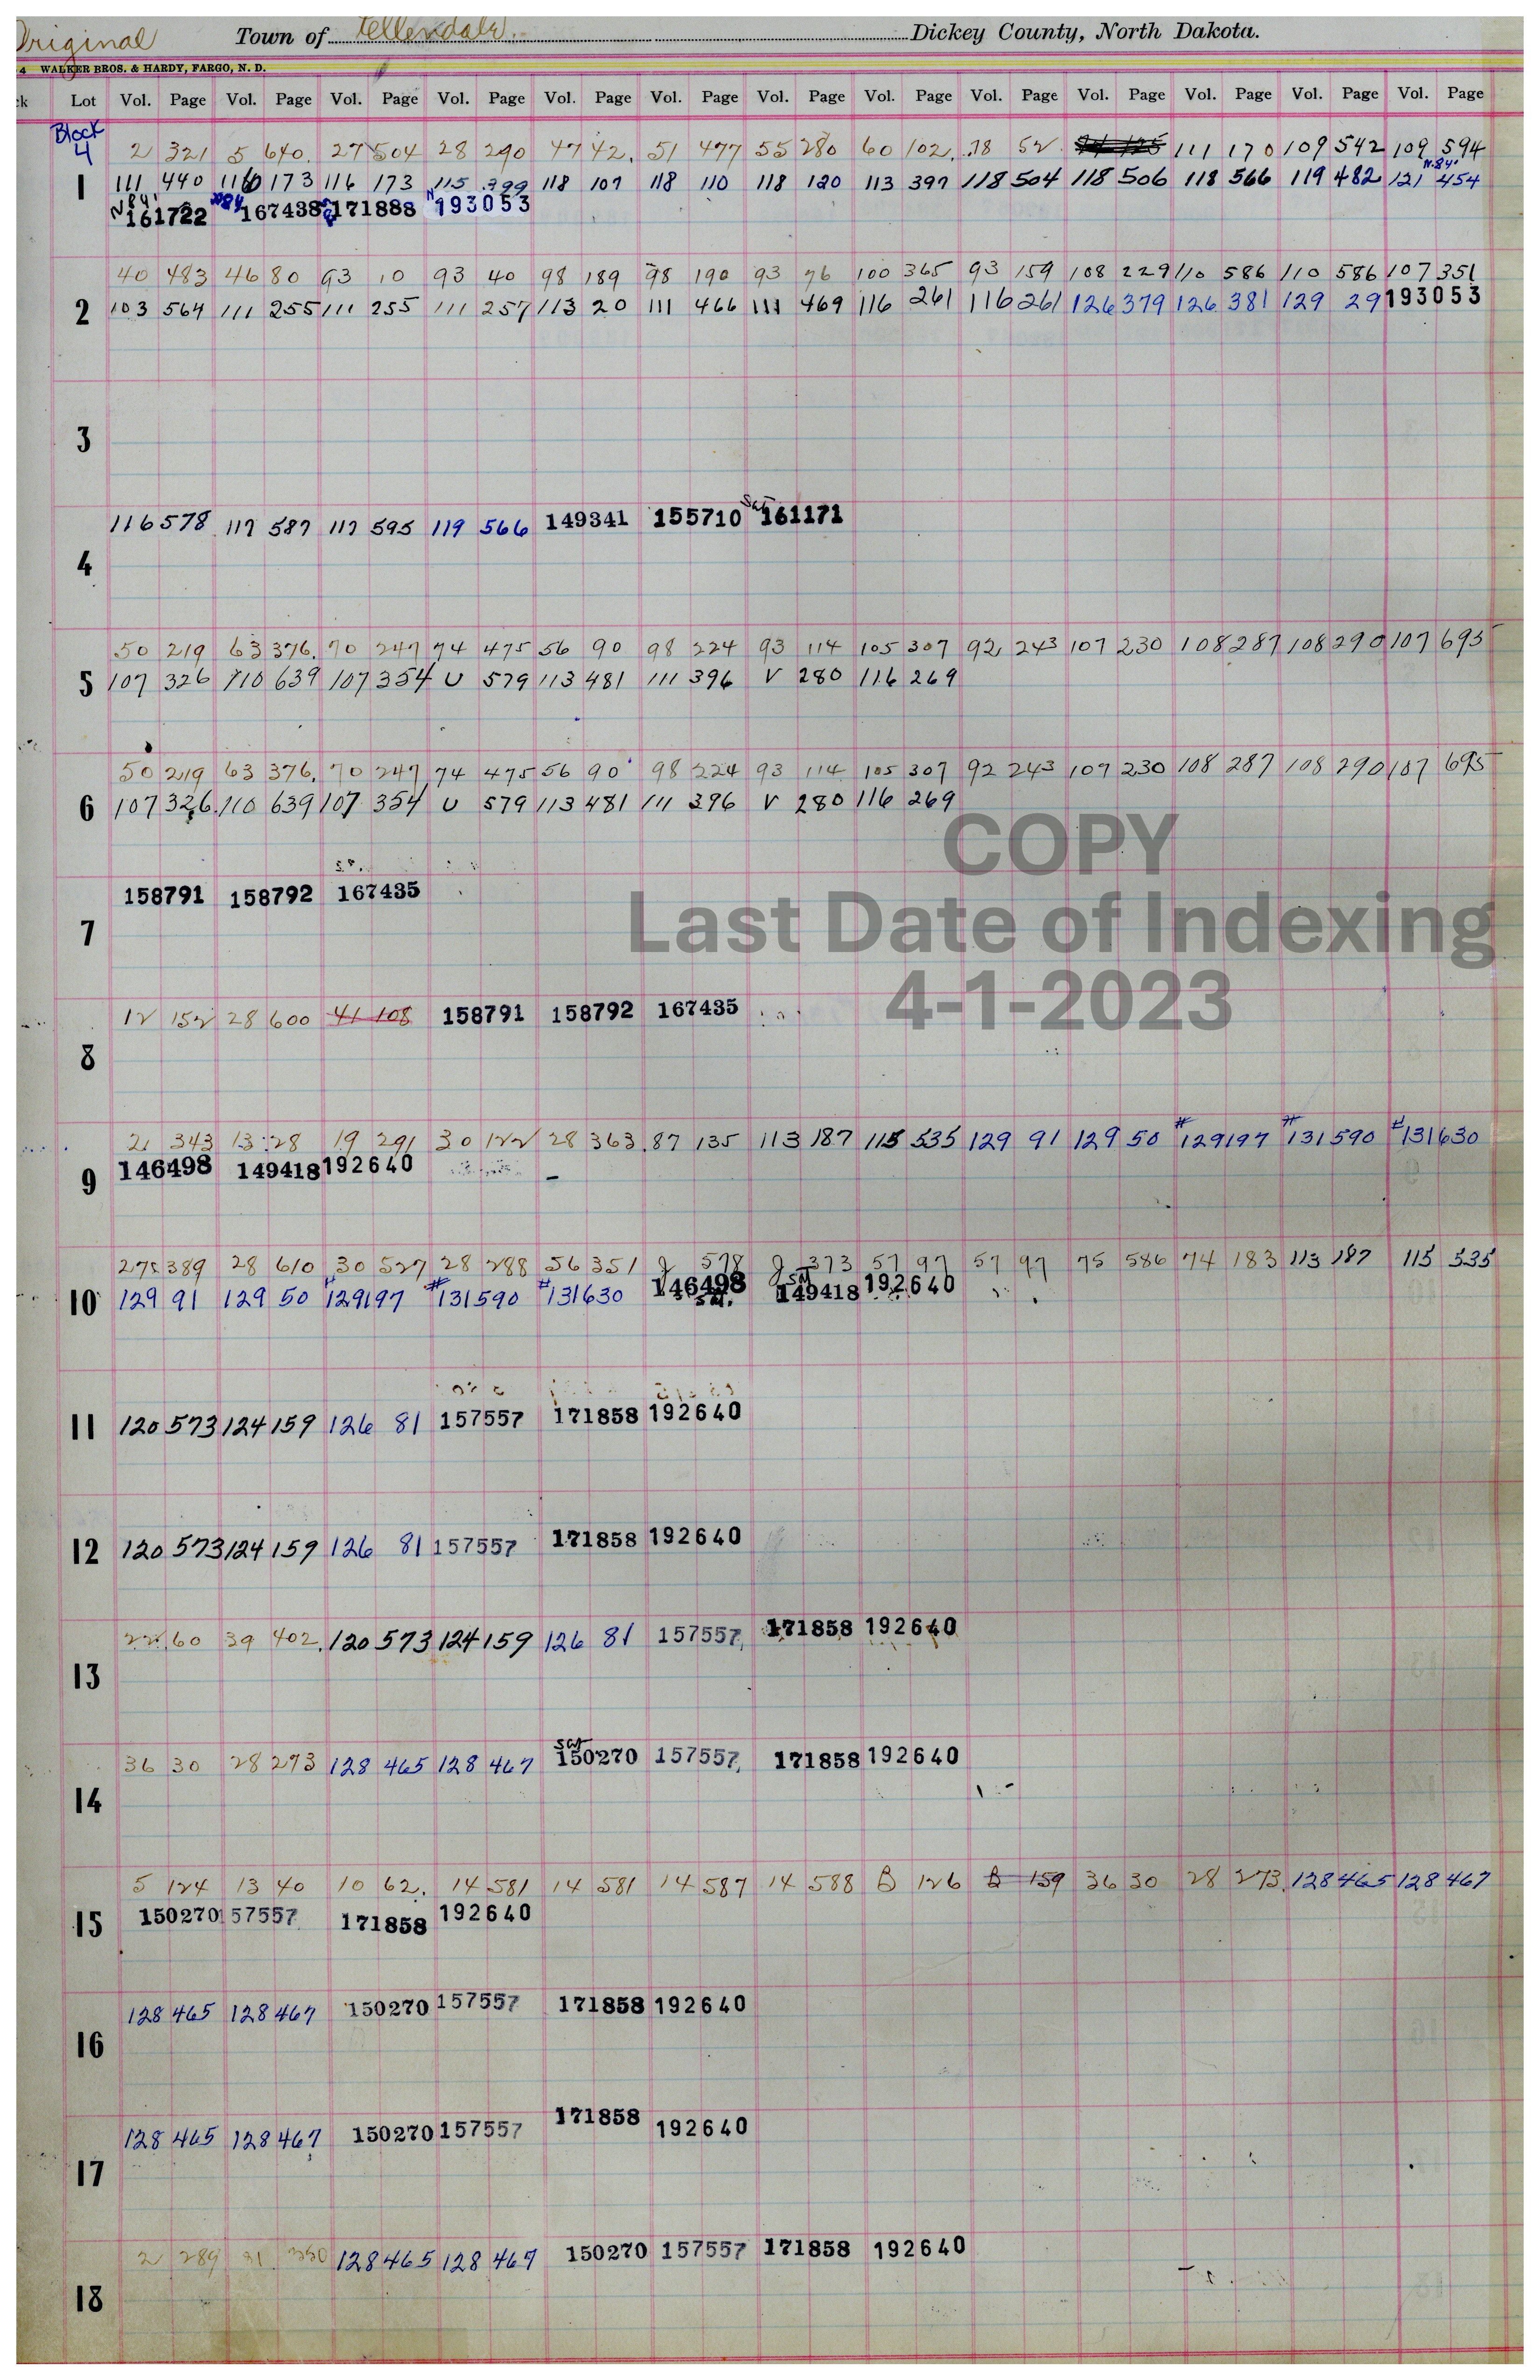 Original Town of Ellendale Dickey County, North Dakota.
4 WALKER BROS. & HARDY, FARGO, N. D.
ck Lot Vol. Page Vol. Page Vol. Page Vol. Page Vol. Page Vol. Page Vol. Page Vol. Page Vol. Page Vol. Page Vol. Page Vol. Page Vol. Page
Block
4 2 321 5 640 27 504 28 290 47 42 51 477 55 280 60 102 78 52 111 170 109 542 109 594
N.84'
1 111 440 116 173 116 173 115 399 118 107 118 110 118 120 113 397 118 504 118 506 118 566 119 482 121 454
N84' 161722 N84 167438 171888 N 193053
40 483 46 80 93 10 93 40 98 189 98 190 93 76 100 365 93 159 108 229 110 586 110 586 107 351
2 103 564 111 255 111 255 111 257 113 20 111 466 111 469 116 261 116 261 126 379 126 381 129 29 193053
3
SW
116 578 117 587 117 595 119 566 149341 155710 161171
4
50 219 63 376 70 247 74 475 56 90 98 224 93 114 105 307 92 243 107 230 108 287 108 290 107 695
5 107 326 110 639 107 354 U 579 113 481 111 396 V 280 116 269
50 219 63 376 70 247 74 475 56 90 98 224 93 114 105 307 92 243 107 230 108 287 108 290 107 695
6 107 326 110 639 107 354 U 579 113 481 111 396 V 280 116 269
COPY
158791 158792 167435
Last Date of Indexing
7
4-1-2023
12 152 28 600 41 108 158791 158792 167435
8
2 343 13 28 19 291 30 122 28 363 87 135 113 187 115 535 129 91 129 50 #129197 #131590 #131630
9 146498 149418 192640
275 389 28 610 30 527 28 288 56 351 g 578 g 373 57 97 57 97 75 586 74 183 113 187 115 535
10 129 91 129 50 #129197 #131590 #131630 146498 149418 192640
11 120 573 124 159 126 81 157557 171858 192640
12 120 573 124 159 126 81 157557 171858 192640
22 60 39 402 120 573 124 159 126 81 157557 171858 192640
13
SW
36 30 28 273 128 465 128 467 150270 157557 171858 192640
14
5 124 13 40 10 62 14 581 14 581 14 587 14 588 B 126 B 159 36 30 28 273 128 465 128 467
15 150270 157557 171858 192640
128 465 128 467 150270 157557 171858 192640
16
128 465 128 467 150270 157557 171858 192640
17
2 289 31 350 128 465 128 467 150270 157557 171858 192640
18